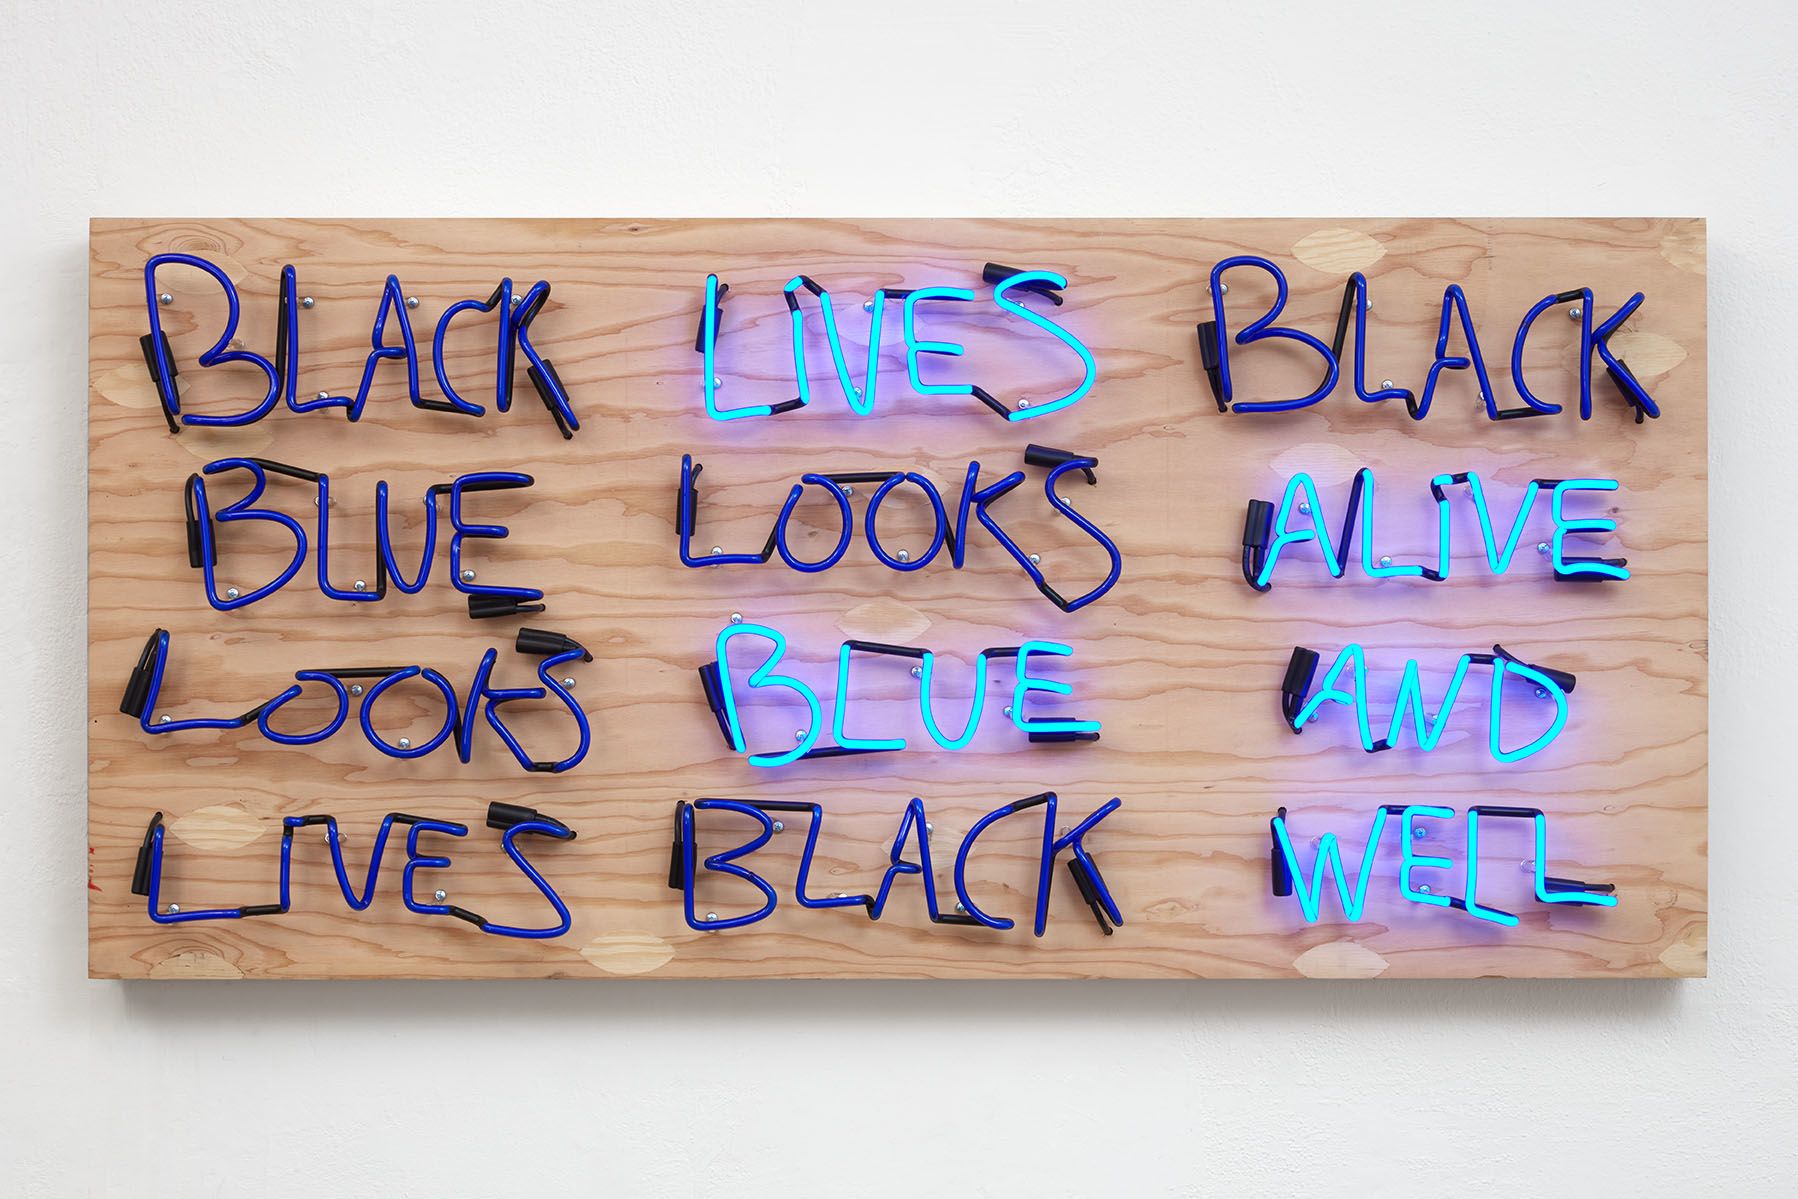 BLACK LIVES BLACK
BLUE LOOKS ALIVE
LOOKS BLUE AND
LIVES BLACK WELL